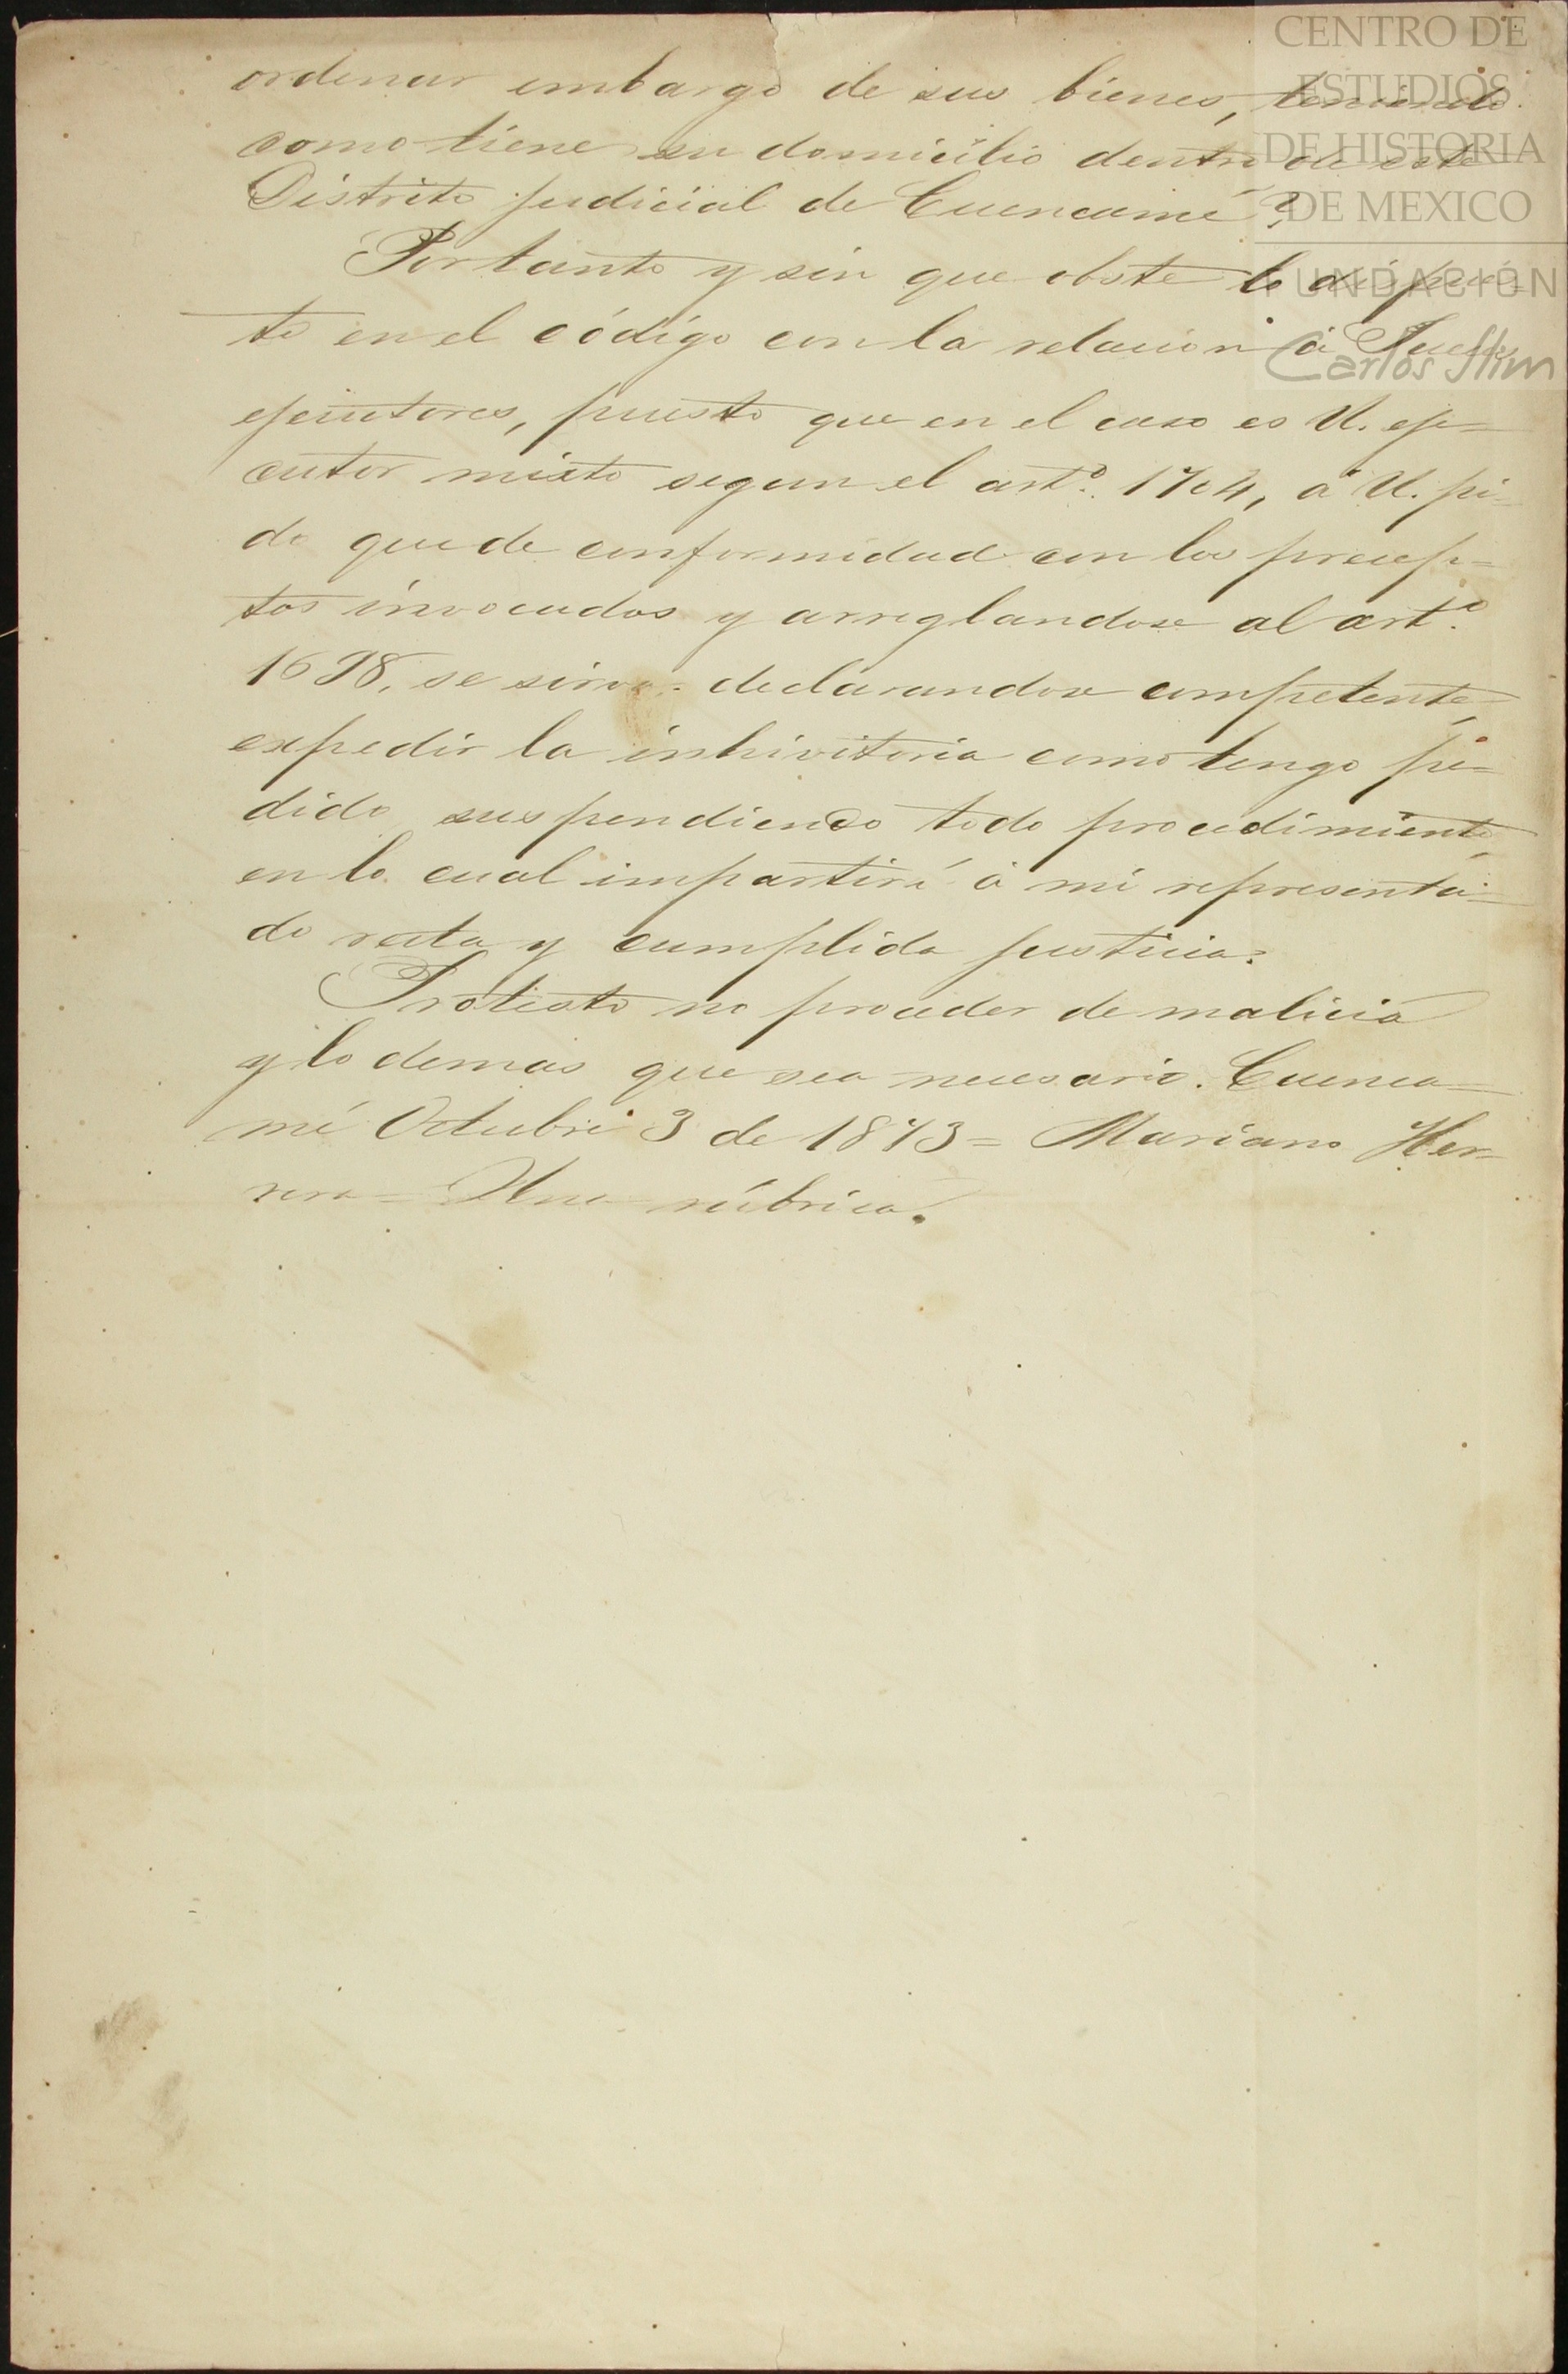 ordenar embargo de sus bienes, teniendo
como tiene su domicilio dentro de este
Distrito judicial de Cuencamé?
Por tanto y sin que obste lo dispues-
to en el código con la relacion á Jueces
ejecutores, puesto que en el caso es U. eje-
cutor mixto segun el artº. 1704, á U. pi-
do que de conformidad con los precep-
tos invocados y arreglandose al artº.
1698, se sirva declarandose competente,
expedir la inhivitoria como tengo pe-
dido suspendiendo todo procedimiento,
en lo cual impartirá á mi representa-
do recta y cumplida justicia.
Protesto no proceder de malicia
y lo demas que sea necesario. Cuenca-
mé Octubre 3 de 1873 = Mariano Her-
rera = Una rúbrica.
CENTRO DE
ESTUDIOS
DE HISTORIA
DE MEXICO
FUNDACIÓN
Carlos Slim